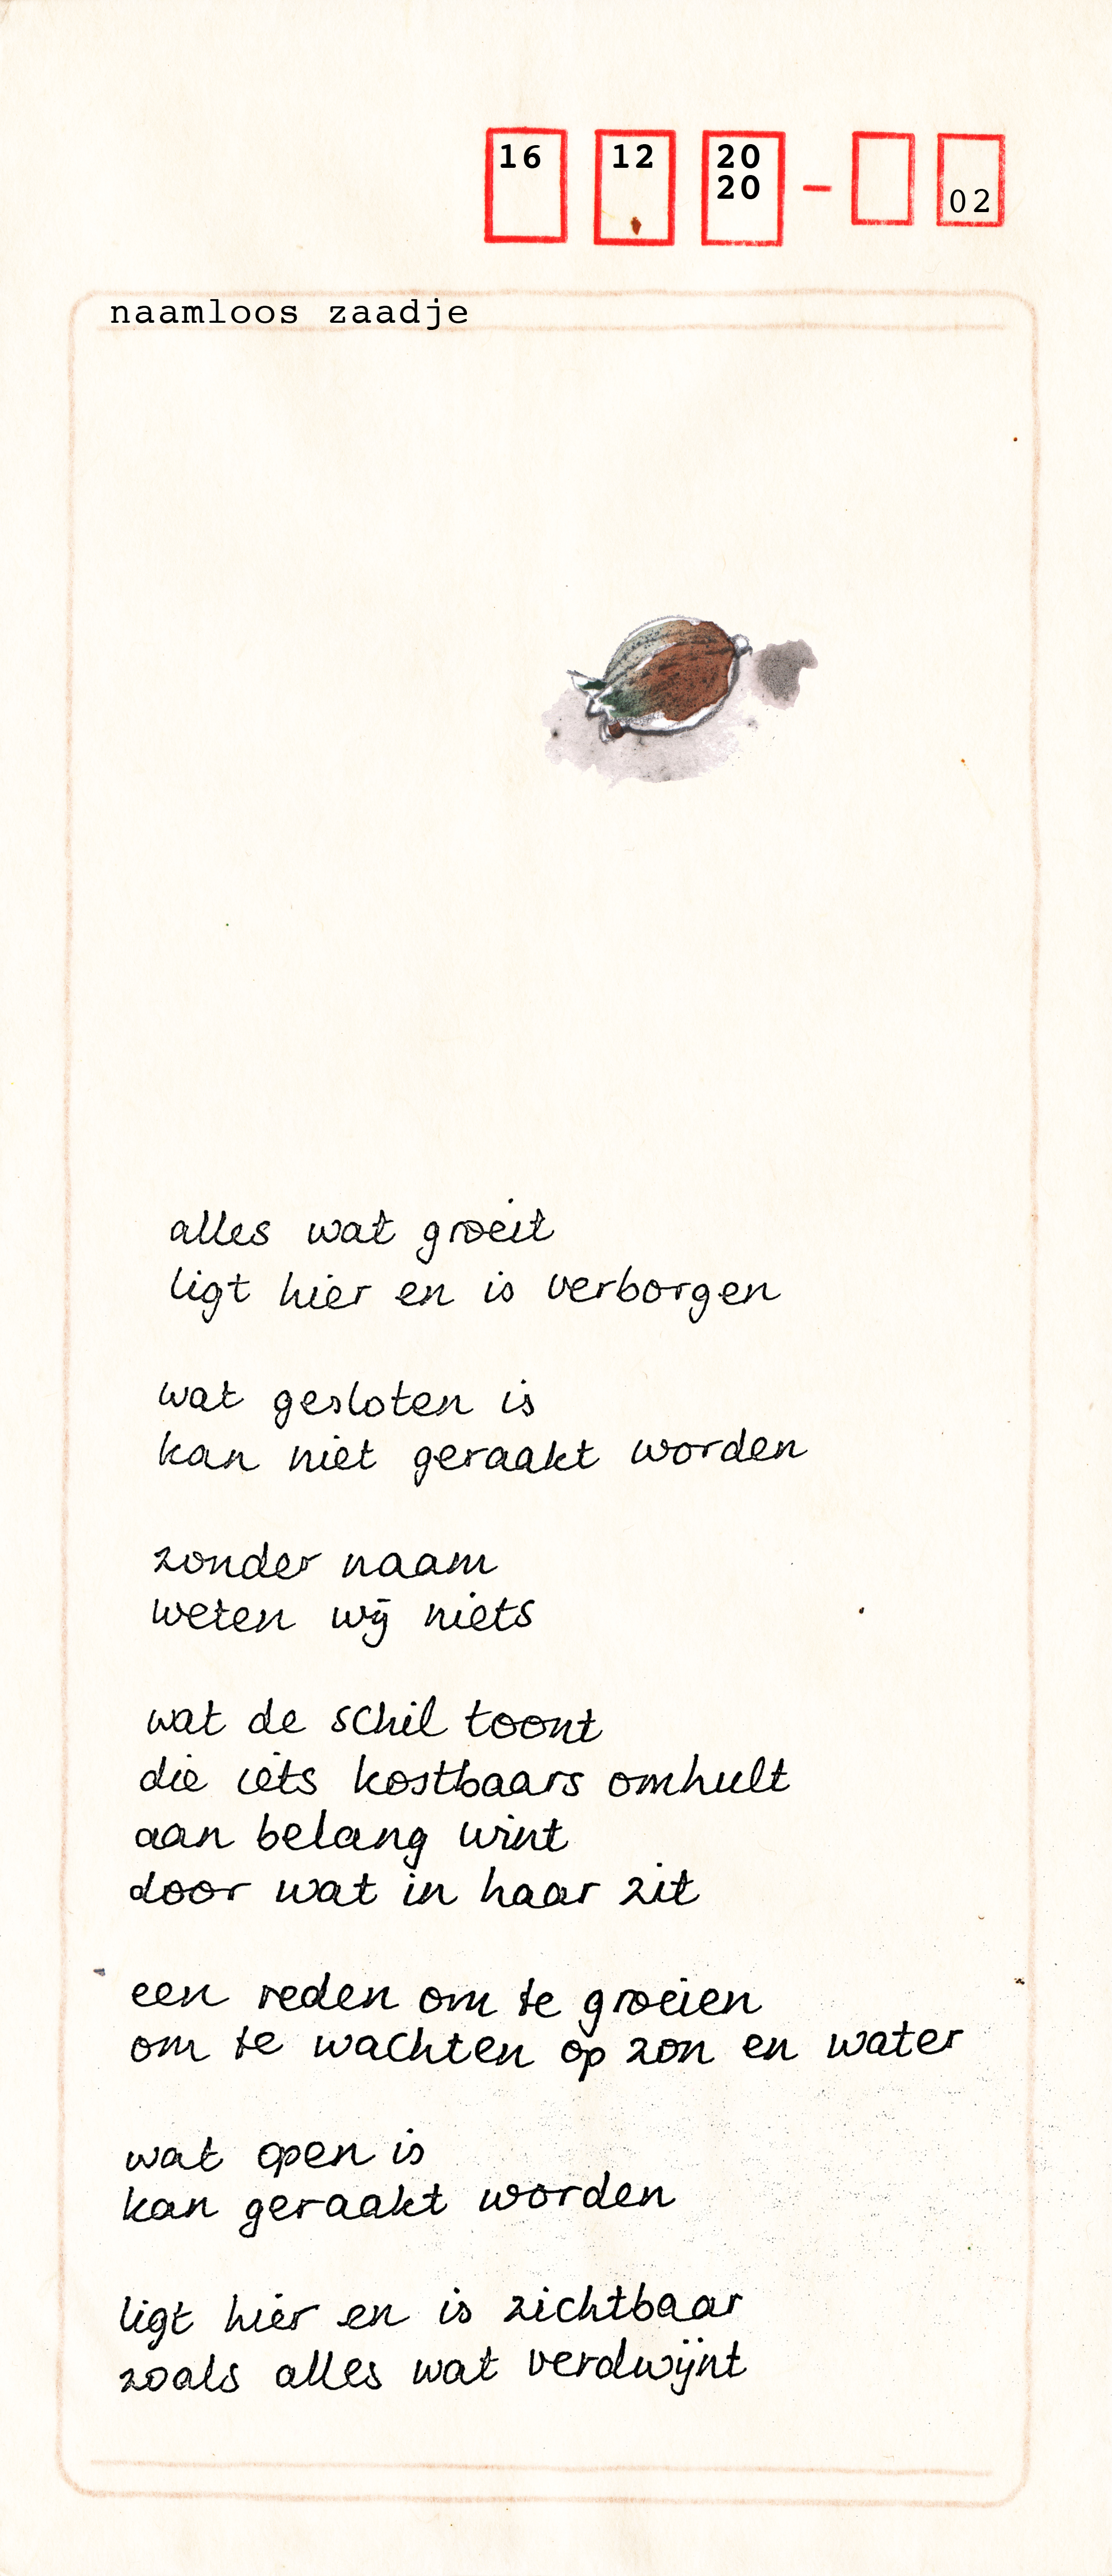 16 12 20 - 02
20
naamloos zaadje
alles wat groeit
ligt hier en is verborgen
wat gesloten is
kan niet geraakt worden
zonder naam
weten wij niets
wat de schil toont
die iets kostbaars omhult
aan belang wint
door wat in haar zit
een reden om te groeien
om te wachten op zon en water
wat open is
kan geraakt worden
ligt hier en is zichtbaar
zoals alles wat verdwijnt